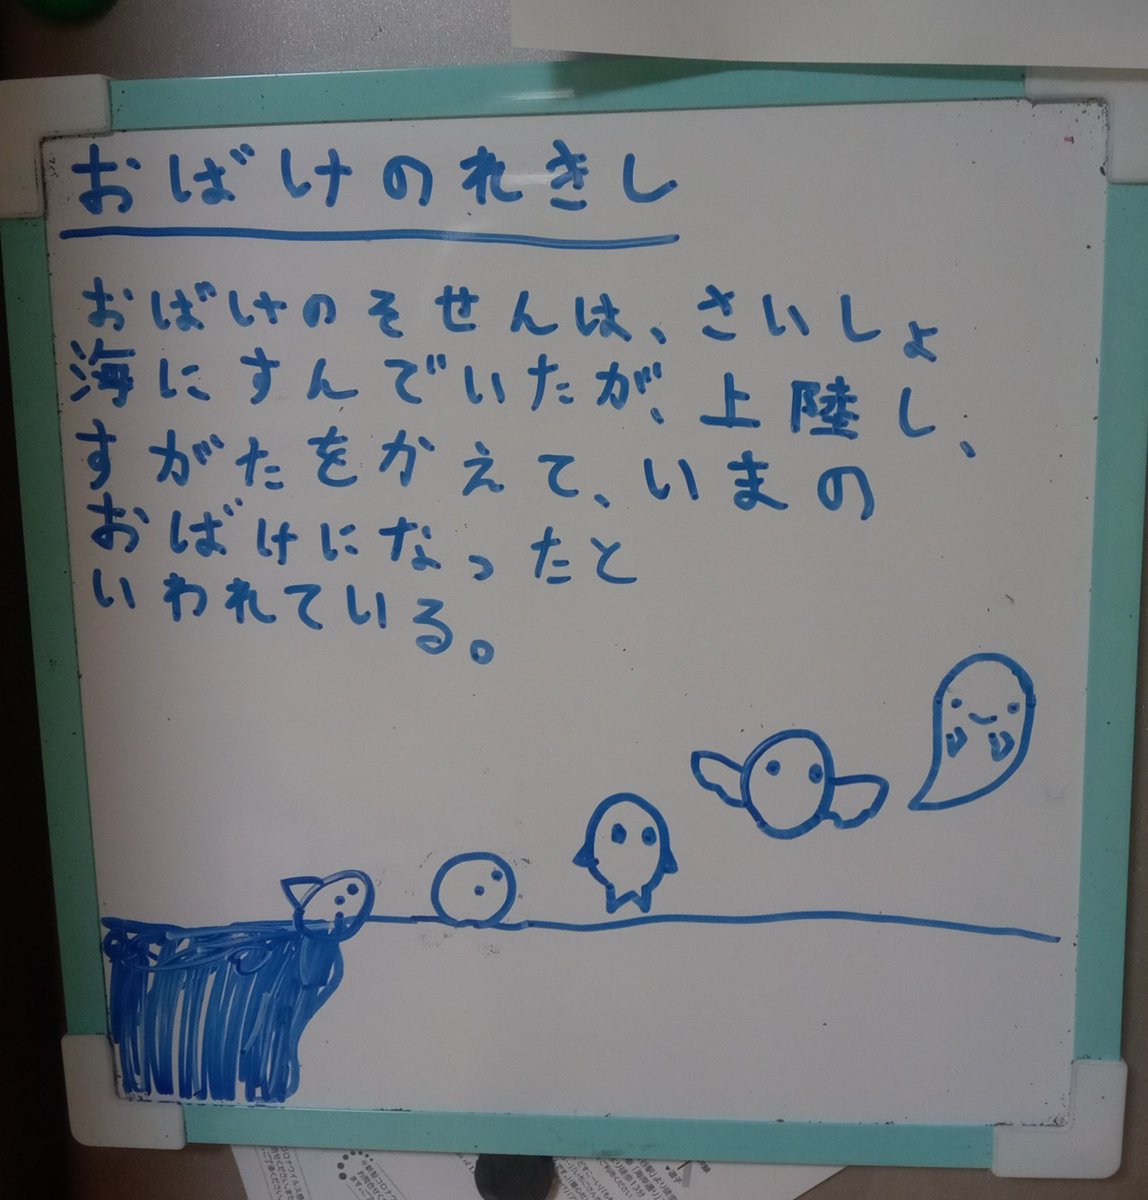 おばけのれきし
おばけのそせんは、さいしょ
海にすんでいたが、上陸し、
すがたをかえて、いまの
おばけになったと
いわれている。